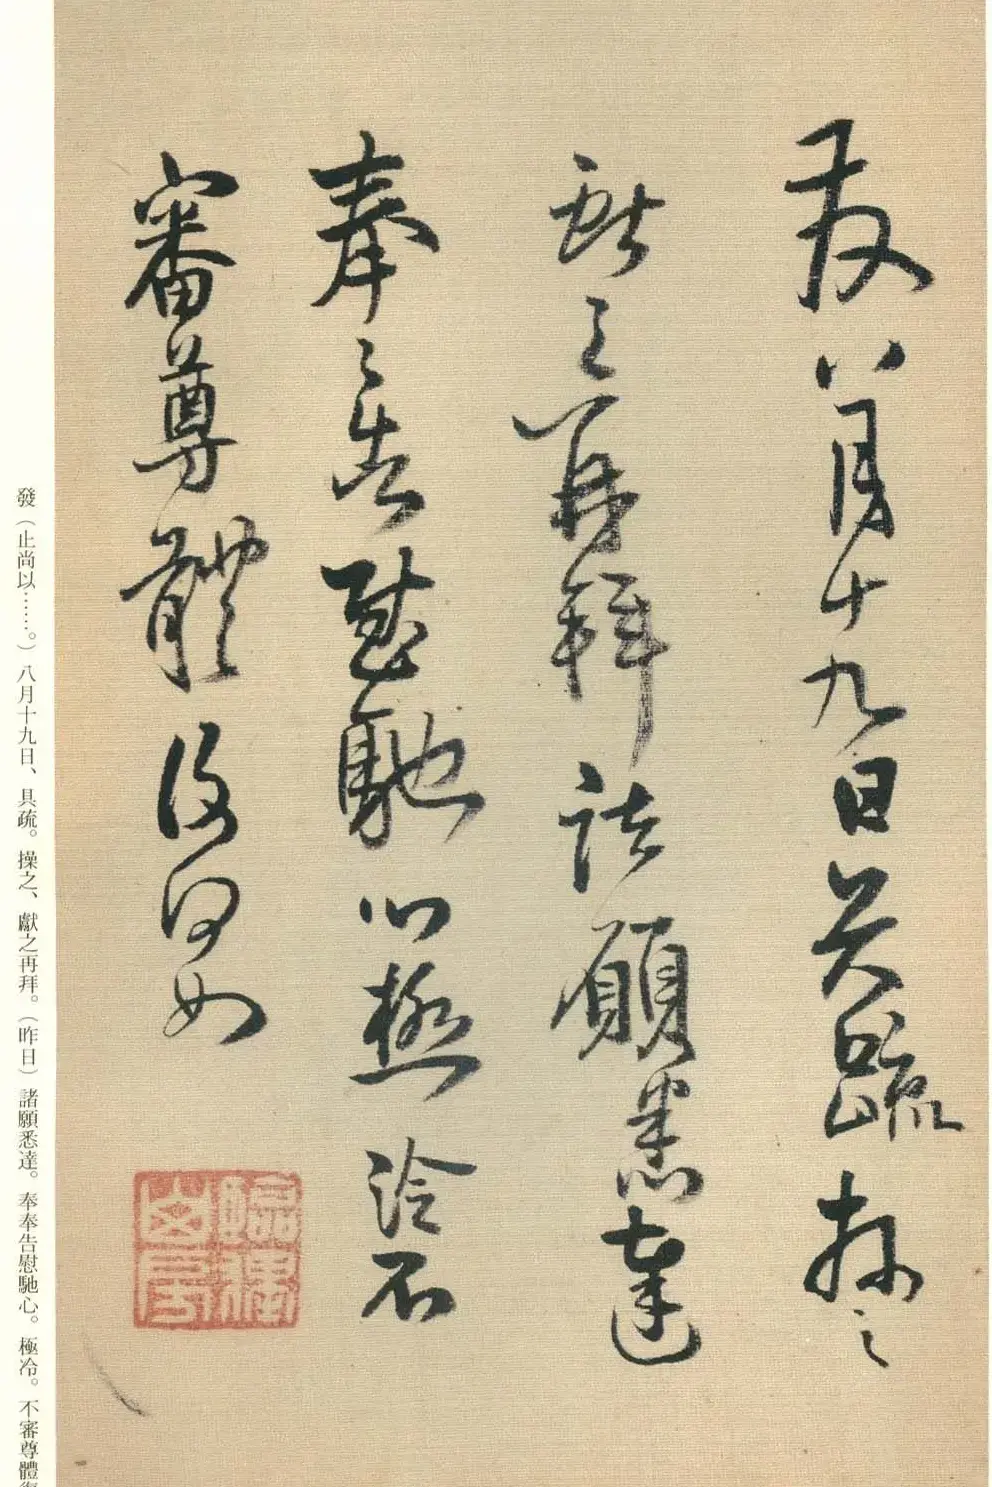 發八月十九日具疏操之
獻之再拜諸願悉達
奉〻告慰馳心極冷不
審尊體復何如
發（止尚以……。）八月十九日、具疏。操之、獻之再拜。（昨日）諸願悉達。奉奉告慰馳心。極冷。不審尊體復